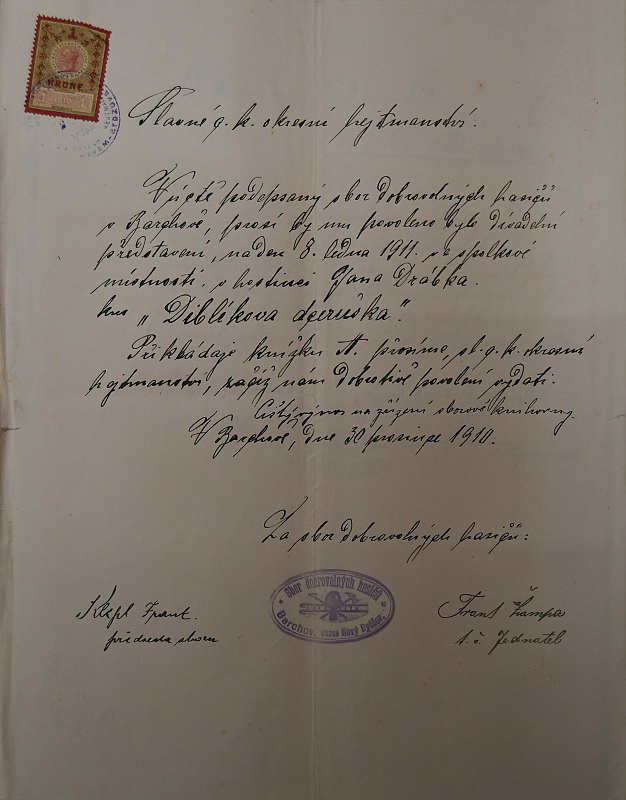 KRONE
Slavné c. k. okresní hejtmanství.
Vúctě podepsaný sbor dobrovolných hasičů
v Barchově, prosí by mu povoleno bylo divadelní
představení, na den 8. ledna 1911. ve spolkové
místnosti v hostinci Jana Drábka.
kus „Diblíkova dceruška".
Přikládaje knížku prosíme, sl. c. k. okresné
hejtmanství, račiž nám dobrotivě povolení vydati.
Čistý výnos na zřízení sborové knihovny.
V Barchově, dne 30 prosince 1910.
Za sbor dobrovolných hasičů:
Sbor dobrovolných hasičů
Barchov. okres Nový Bydžov.
Klepl Frant.
předseda sboru
Frant Žampa
t. č. Jednatel